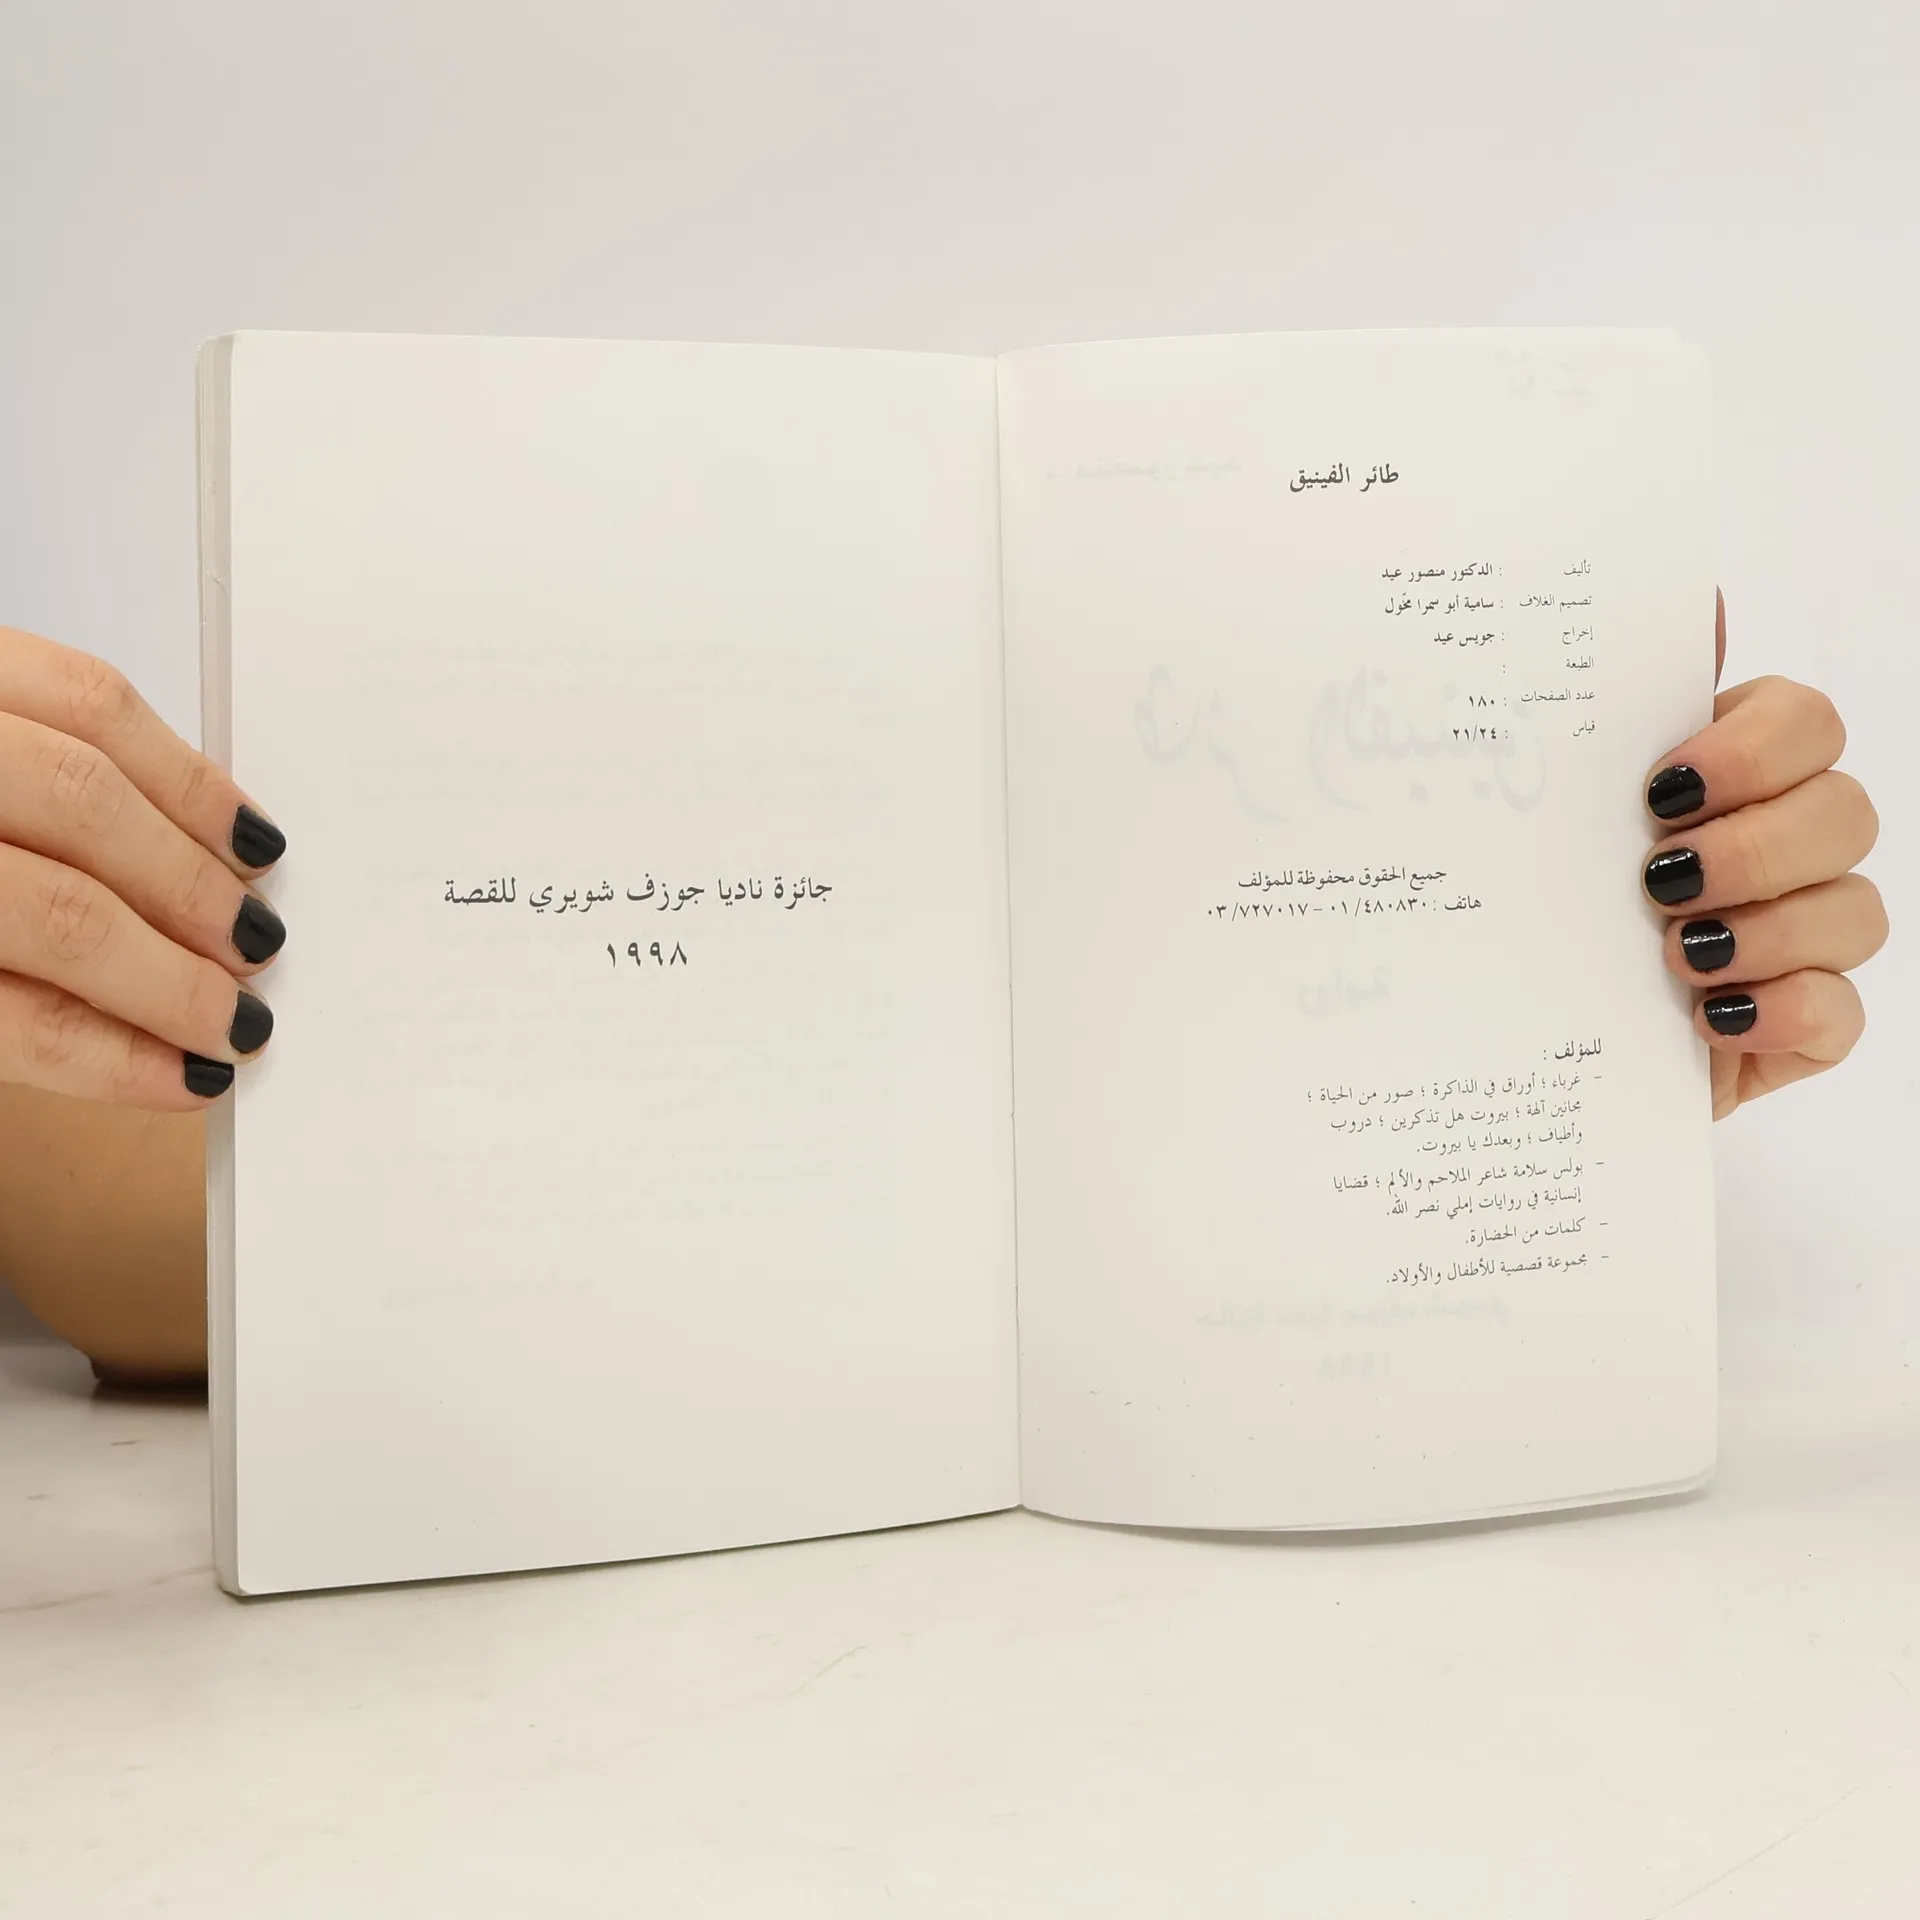 طائر الفينيق
تأليف : الدكتور منصور عيد
تصميم الغلاف : سامية أبو سمرا مخّول
إخراج : جويس عيد
الطبعة :
عدد الصفحات : ١٨٠
قياس : ٢١/٢٤
جميع الحقوق محفوظة للمؤلف
هاتف : ٠١/٤٨٠٨٣٠ – ٠٣/٧٢٧٠١٧
للمؤلف :
– غرباء ؛ أوراق في الذاكرة ؛ صور من الحياة ؛
مجانين آلهة ؛ بيروت هل تذكرين ؛ دروب
وأطياف ؛ وبعدك يا بيروت.
– بولس سلامة شاعر الملاحم والألم ؛ قضايا
إنسانية في روايات إملي نصر الله.
– كلمات من الحضارة.
– مجموعة قصصية للأطفال والأولاد.
جائزة ناديا جوزف شويري للقصة
١٩٩٨